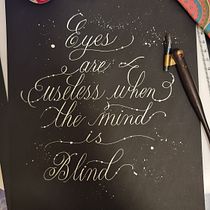 Eyes
are
useless when
the mind
is
Blind